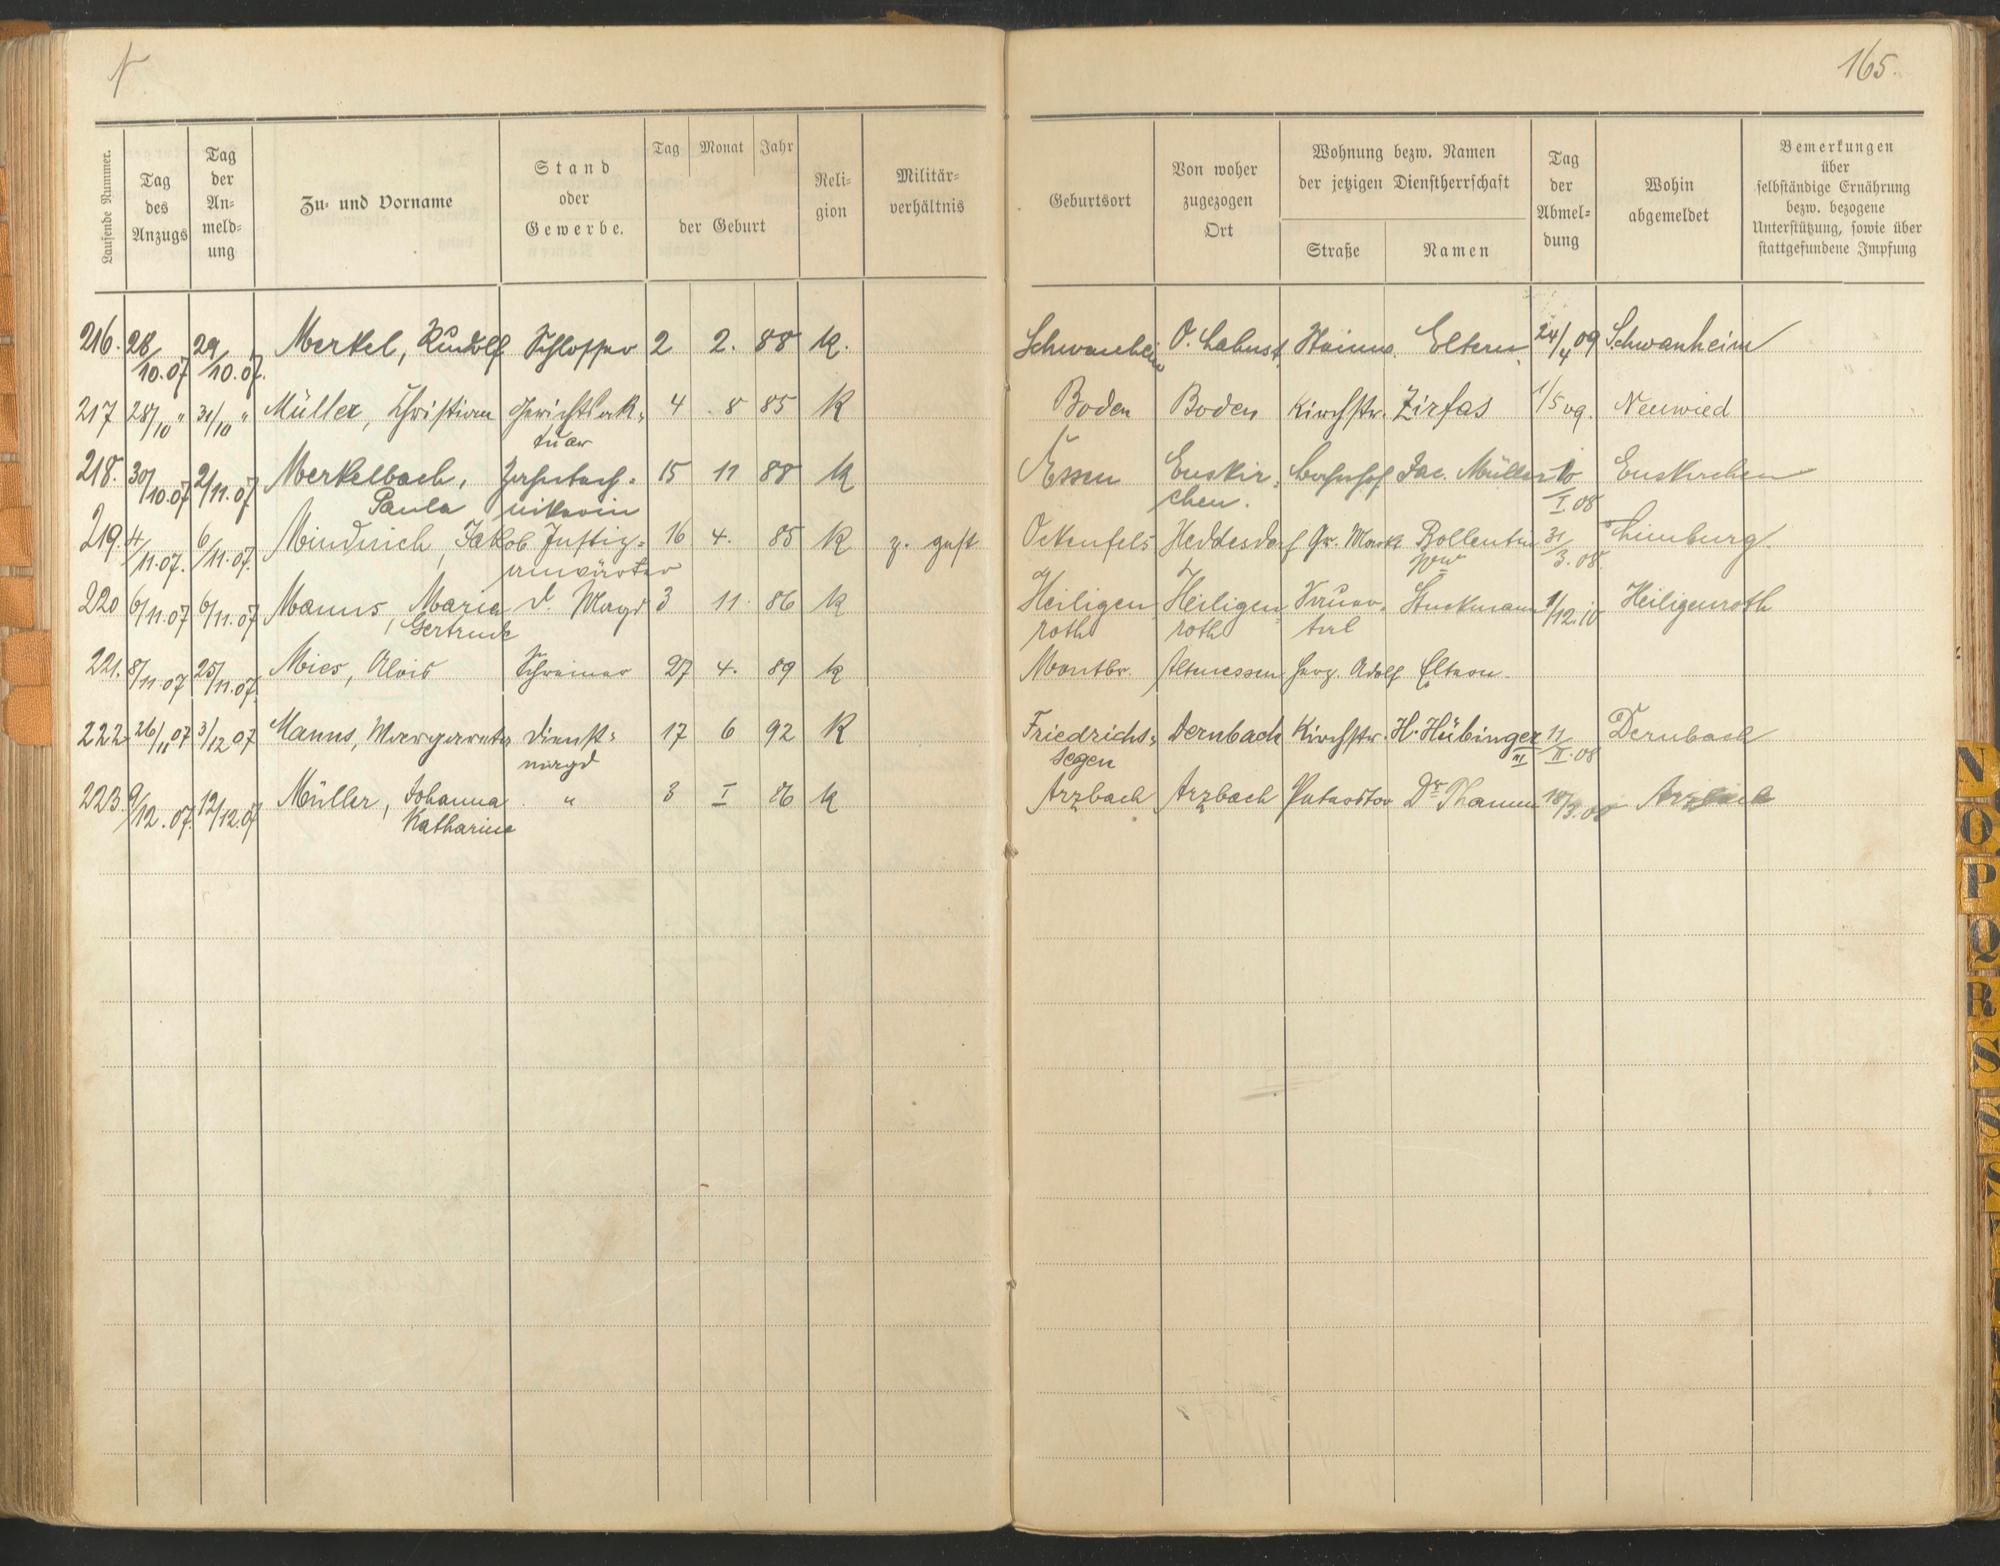 165.
Laufende Nummer.
Tag des Anzugs
Tag der An-meld-ung
Zu- und Vorname
Stand oder Gewerbe.
Tag Monat Jahr
der Geburt
Reli-gion
Militär-verhältnis
Geburtsort
Von woher zugezogen Ort
Wohnung bezw. Namen der jetzigen Dienstherrschaft
Straße Namen
Tag der Abmel-dung
Wohin abgemeldet
Bemerkungen über selbständige Ernährung bezw. bezogene Unterstützung, sowie über stattgefundene Impfung
216. 28/10.07 29/10.07. Merkel, Rudolf Schlosser 2 2. 88 K. Schwanheim O. Lahnst. Eltern 24/4 09 Schwanheim
217 28/10 " 31/10 " Müller, Christian Gerichtsak-tuar 4 8 85 K Boden Boden Kirchstr. Zirfas 1/5 09. Neuwied
218. 30/10.07 2/11.07 Merkelbach, Paula Zahntech-nikerin 15 11 88 K Essen Euskir-chen. Bahnhof Jac. Müller 10/I.08 Euskirchen
219. 4/11.07. 6/11.07. Mindrich, Jakob Justiz-anwärter 16 4. 85 K z. gest Ockenfels Heddesdorf Gr. Markt Bollentin Ww 31/3.08. Limburg.
220 6/11.07 6/11.07. Manns, Maria Gertrude d. Magd 3 11. 86 K Heiligen-roth Heiligen-roth Stuckmann 1/12.10 Heiligenroth
221. 8/11.07 25/11.07. Mies, Alois Schreiner 27 4. 89 K Montbr. Altenessen Herz. Adolf Eltern.
222 26/11 07 3/12 07 Manns, Margareta Dienst-magd 17 6 92 K Friedrichs-segen Dernbach Kirchstr. H. Hübinger III 11/II.08 Dernbach
223. 9/12.07. 12/12.07 Müller, Johanna Katharina " 3 I 86 K Arzbach Arzbach Dr Thamm 18/3.08 Arzbach
N
O
P
Q
R
S
S
S